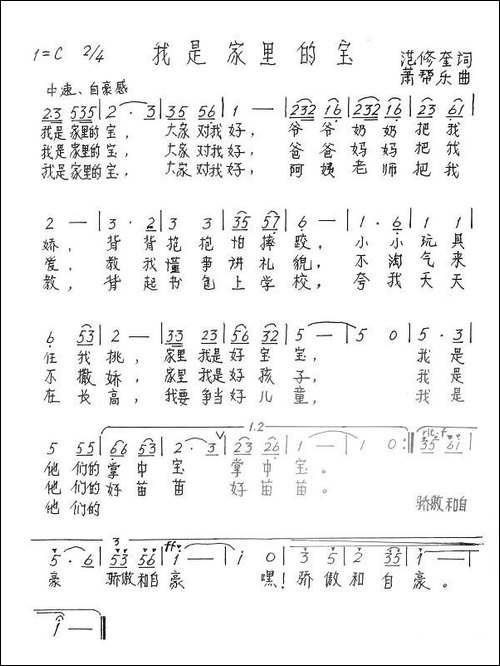 1=C 2/4 我是家里的宝 范修奎 词
萧帮乐 曲
中速、自豪感
23 535 | 2 · 3 | 35 56 | 1 — | 232 16 | 232 16 | 23 61 |
我是家里的宝，大家对我好，爷爷奶奶把我
我是家里的宝，大家对我好，爸爸妈妈把我
我是家里的宝，大家对我好，阿姨老师把我
2 — | 3 · 2 | 3 3 | 35 57 | 6 — | 1 · 6 | 1 1 |
娇，背背抱抱怕摔跤，小小玩具
爱，教我懂事讲礼貌，不淘气来
教，背起书包上学校，夸我天天
6 53 | 2 — | 33 23 | 56 32 | 5 — | 5 0 | 5 · 3 |
任我挑，家里我是好宝宝，我是
不撒娇，家里我是好孩子，我是
在长高，我要争当好儿童，我是
1.2
5 55 | 66 53 | 2 · 3 ∨ | 23 26 | 1 — | 1 0 :‖ rit. f 35 61 |
他们的掌中宝 掌中宝。
他们的好苗苗 好苗苗。
他们的 骄傲和自
3 ff
5 · 6 | 53 56 | i — | i — | i 0 | 3 5 | 2 35 | i — |
豪 骄傲和自豪 嘿！骄傲和自豪。
i — ‖